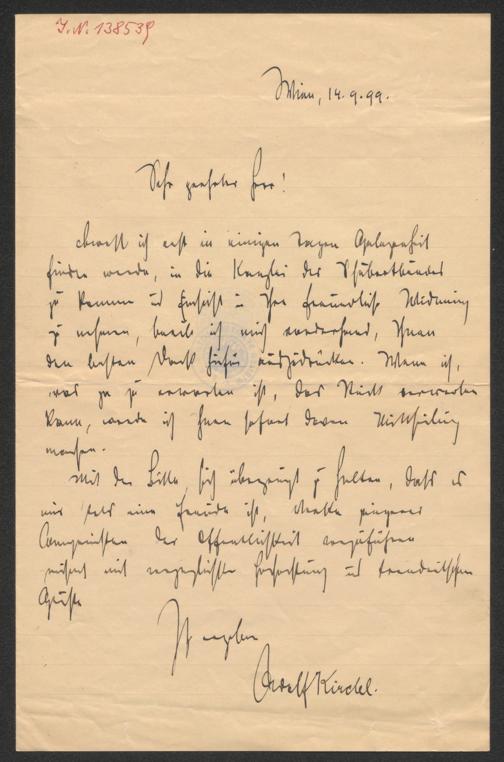 J. N. 138539
Wien, 14.9.99.
Sehr geehrter Herr!
obwohl ich erst in einigen Tagen Gelegenheit
finden werde, in die Kanzlei des Schubertbundes
zu kommen und Einsicht in Ihre freundliche Widmung
zu nehmen, beeile ich mich vorderhand, Ihnen
den besten Dank hiefür auszudrücken. Wenn ich,
was ja zu erwarten ist, das Stück verwerten
kann, werde ich Ihnen sofort davon Mittheilung
machen.
Mit der Bitte, sich überzeugt zu halten, daß es
mir stets eine Freude ist, Werke jüngerer
Componisten der Öffentlichkeit vorzuführen
mit vorzüglichster Hochachtung und treudeutschem
Gruße
Ihr ergebener
Adolf Kirchl.